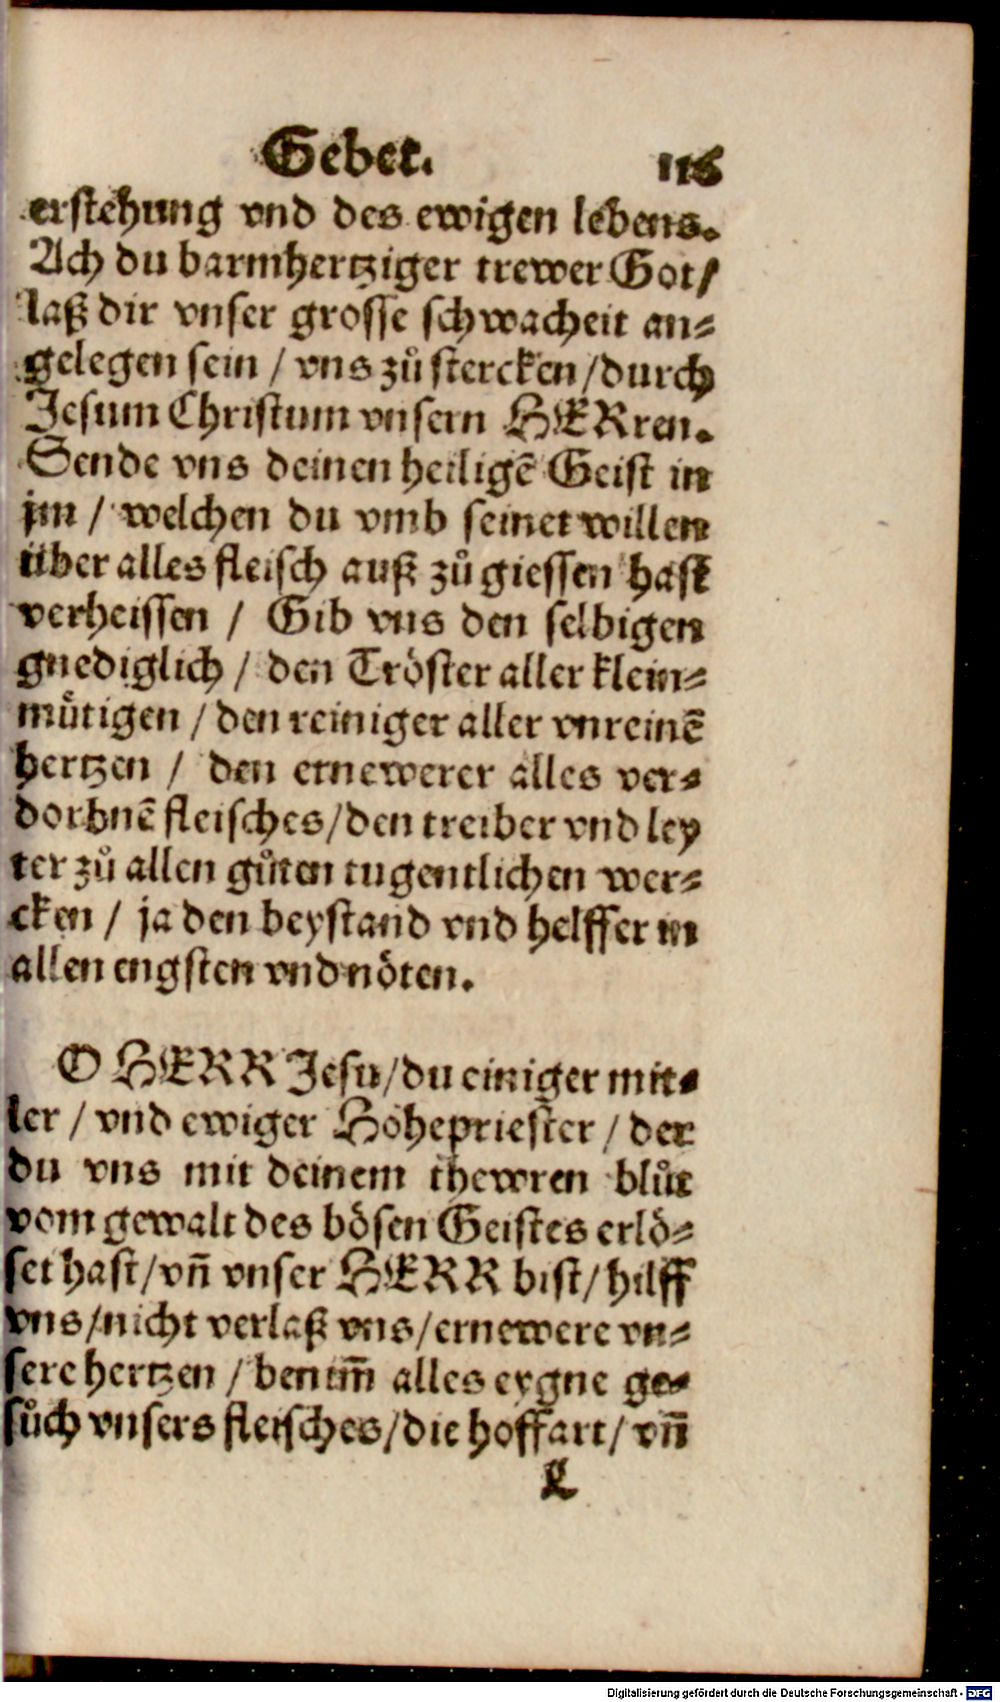 Gebet. 116
erstehung vnd des ewigen lebens.
Ach du barmhertziger trewer Got/
laß dir vnser grosse schwacheit an⸗
gelegen sein / vns zů stercken / durch
Jesum Christum vnsern HERren.
Sende vns deinen heiligē Geist in
jm / welchen du vmb seinet willen
über alles fleisch auß zů giessen hast
verheissen / Gib vns den selbigen
gnediglich / den Tröster aller klein⸗
mütigen / den reiniger aller vnreinē
hertzen / den ernewerer alles ver⸗
dorbnē fleisches/den treiber vnd ley
ter zů allen gůten tugentlichen wer⸗
cken / ja den beystand vnd helffer in
allen engsten vnd nöten.
O HERR Jesu/du einiger mit⸗
ler / vnd ewiger Hohepriester / der
du vns mit deinem thewren blůt
vom gewalt des bösen Geistes erlö⸗
set hast/vn̄ vnser HERR bist/hilff
vns/nicht verlaß vns/ernewere vn⸗
sere hertzen / benim̄ alles eygne ge⸗
sůch vnsers fleisches/die hoffart/ vn̄
L
Digitalisierung gefördert durch die Deutsche Forschungsgemeinschaft - DFG